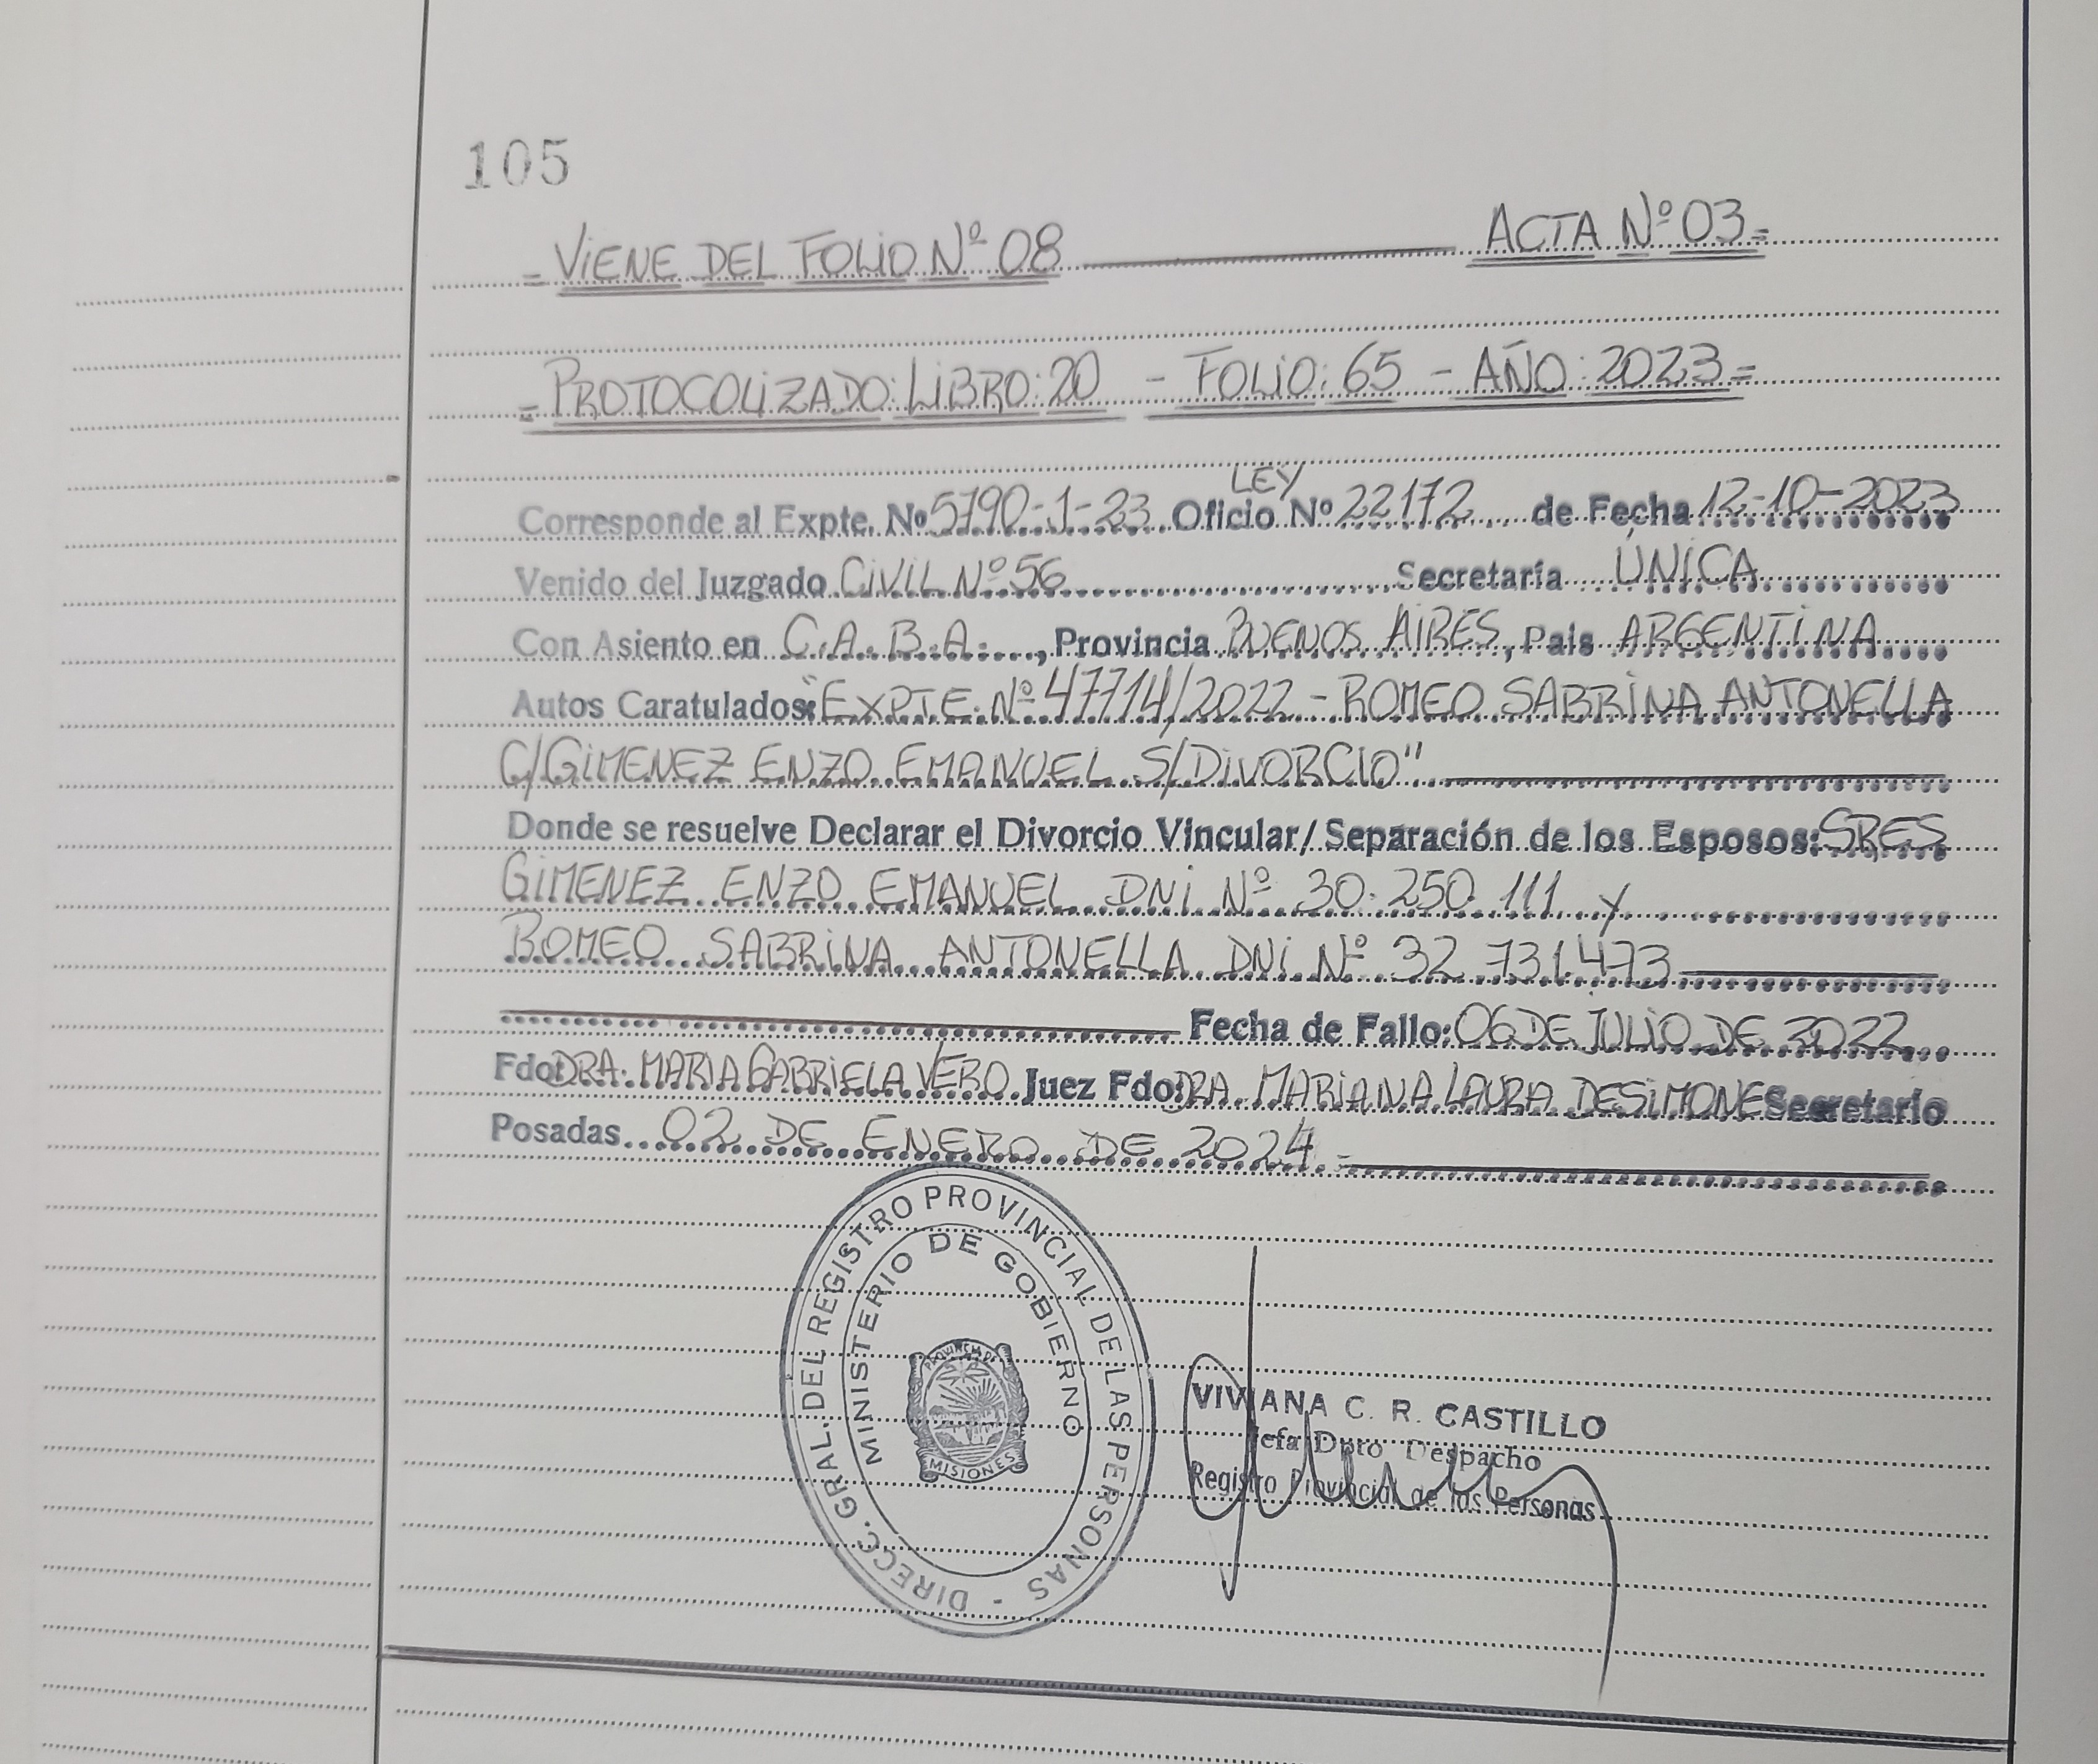 105
= VIENE DEL FOLIO Nº 08 ACTA Nº 03=
= PROTOCOLIZADO: LIBRO: 20 - FOLIO: 65 - AÑO: 2023=
LEY
Corresponde al Expte. Nº 5790-1-23 Oficio Nº 22172 de Fecha 12-10-2023
Venido del Juzgado CIVIL Nº 56 Secretaría ÚNICA
Con Asiento en C.A.B.A. , Provincia BUENOS AIRES, País ARGENTINA
Autos Caratulados: "EXPTE. Nº 47714/2022 - ROMEO SABRINA ANTONELLA
C/GIMENEZ ENZO EMANUEL S/DIVORCIO"
Donde se resuelve Declarar el Divorcio Vincular/Separación de los Esposos: SRES
GIMENEZ ENZO EMANUEL DNI Nº 30.250.111 y
ROMEO SABRINA ANTONELLA DNI Nº 32.731.473
Fecha de Fallo: 06 DE JULIO DE 2022
Fdo: DRA. MARIA GABRIELA VERO Juez Fdo: DRA. MARIANA LAURA DESIMONE Secretario
Posadas 02 DE ENERO DE 2024.-
DIRECC. GRAL. DEL REGISTRO PROVINCIAL DE LAS PERSONAS -
MINISTERIO DE GOBIERNO
PROVINCIA DE
MISIONES
VIVIANA C. R. CASTILLO
Jefa Dpto. Despacho
Registro Provincial de las Personas